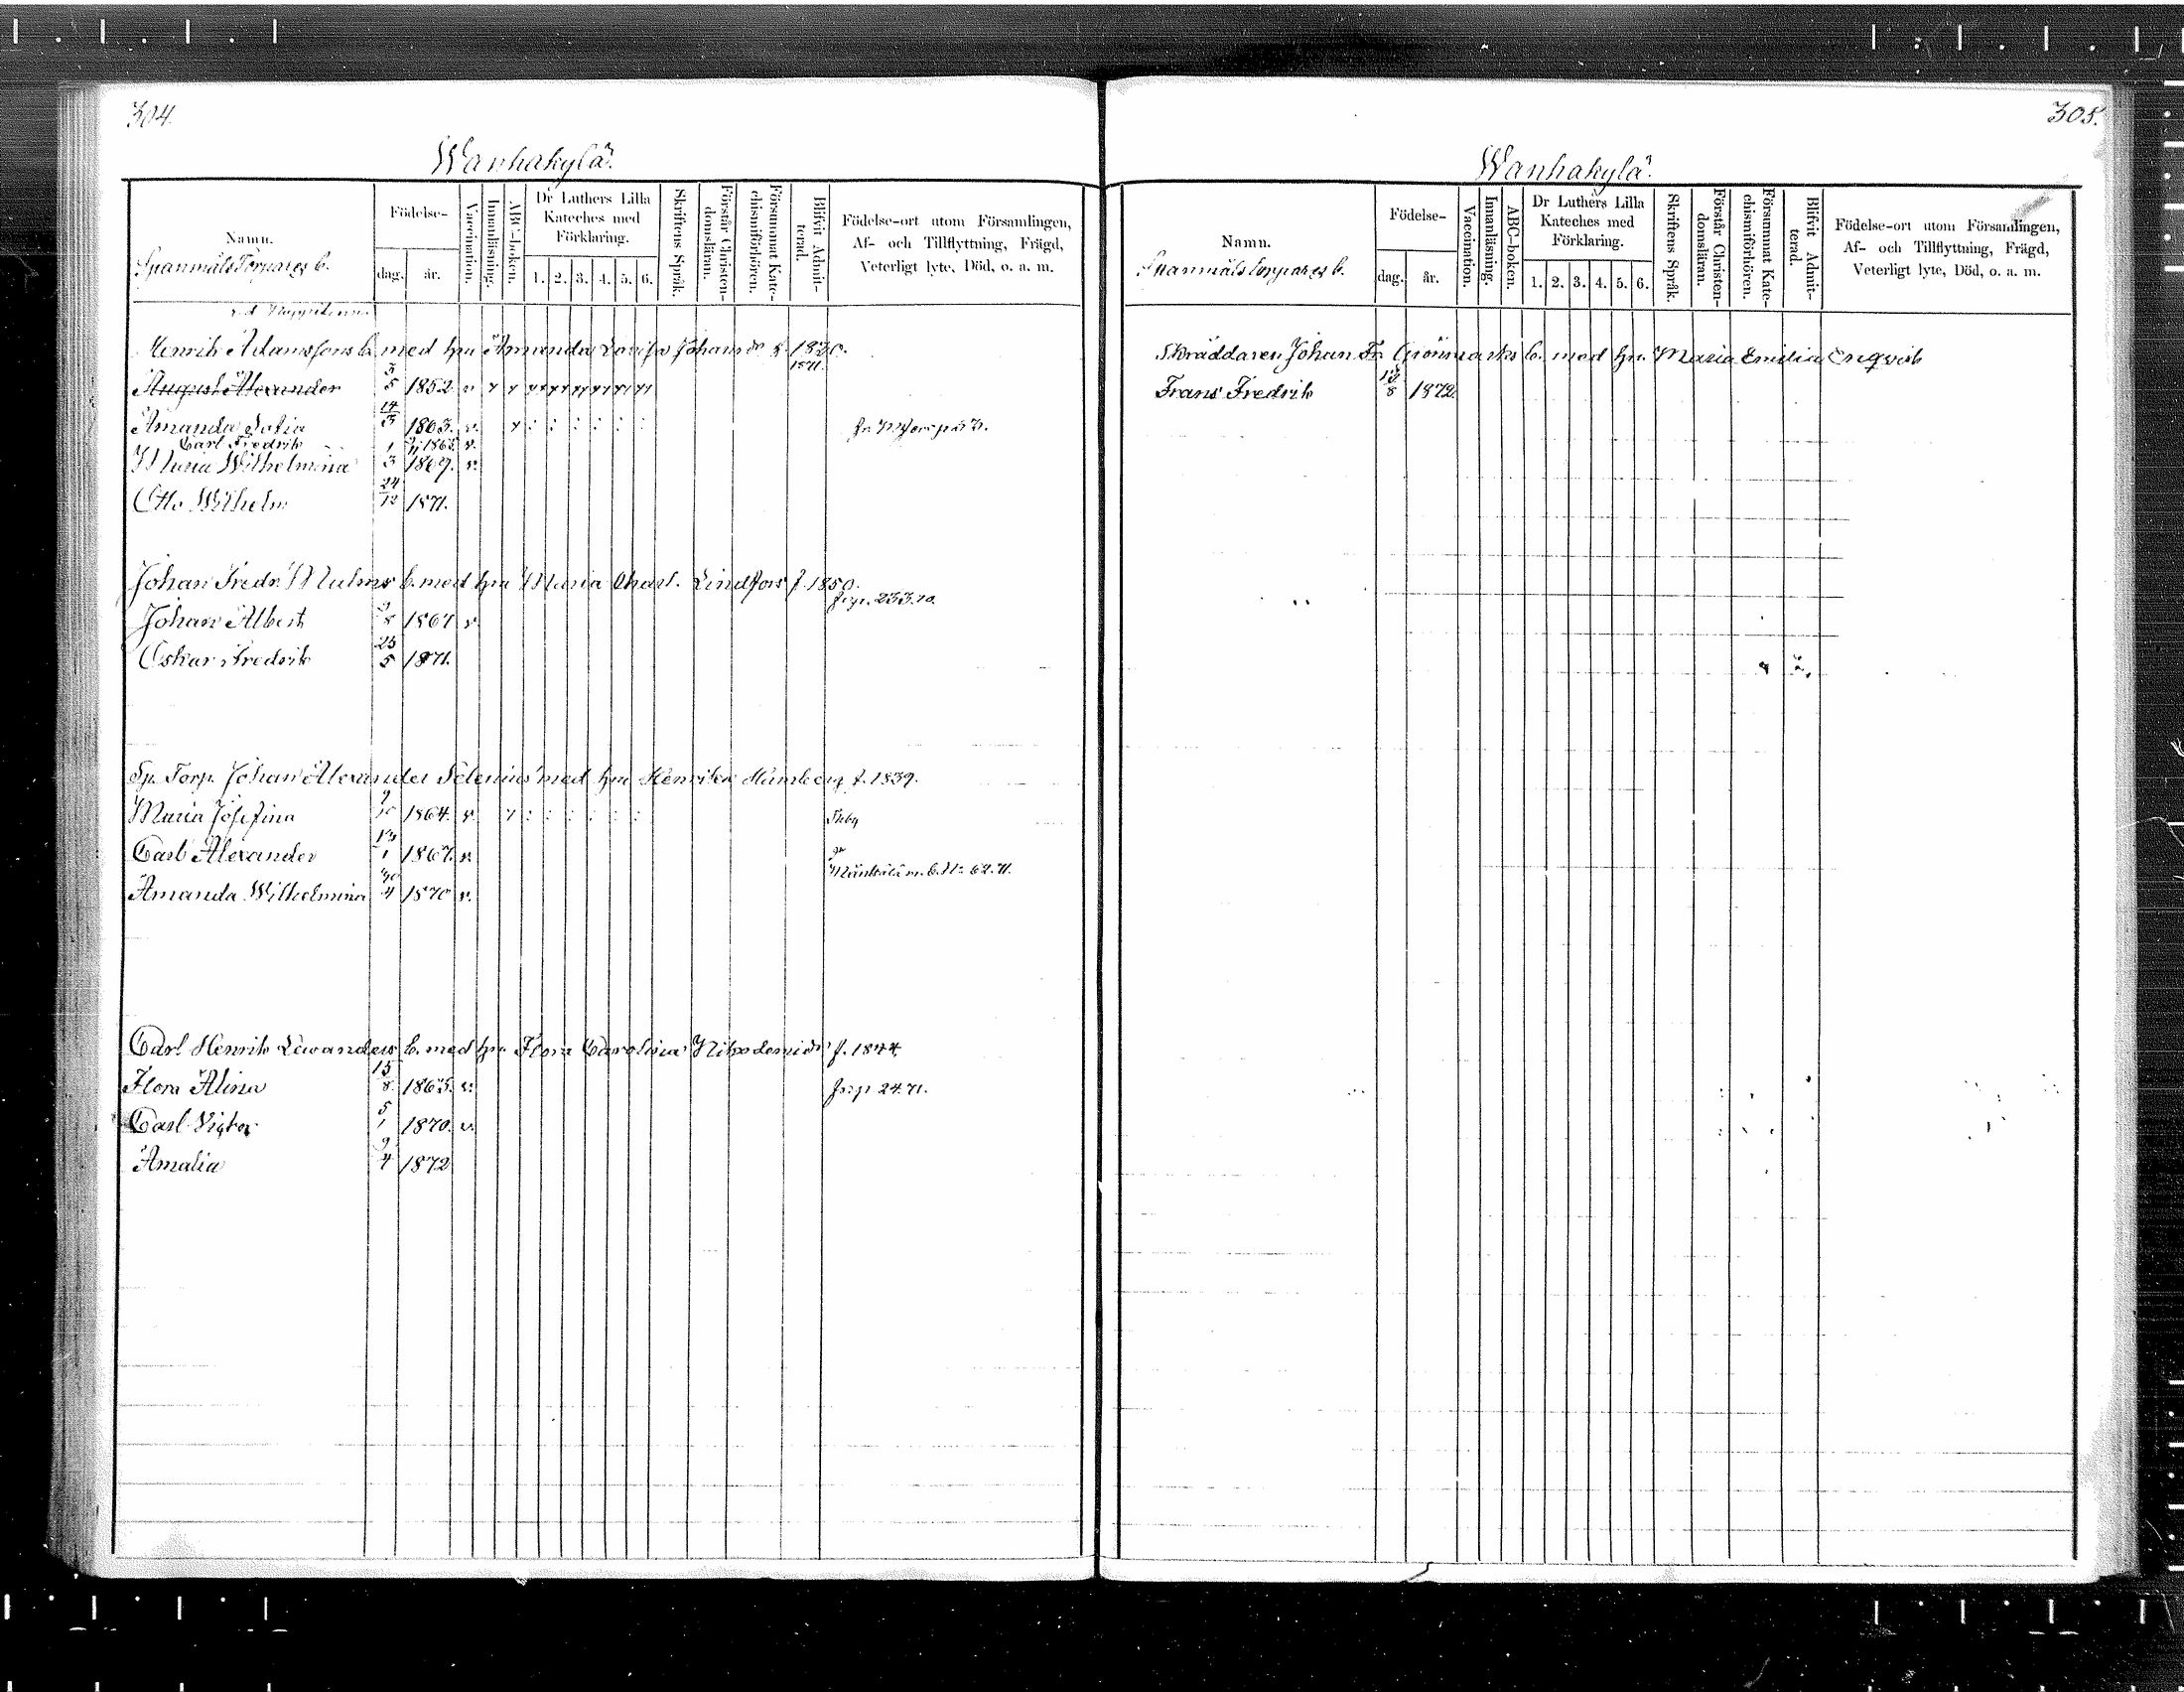 304.
Wanhakylä.
Namn.
Spanmåls Torpares b.
Födelse-
dag. år.
Vaccination.
Innanläsning.
ABC-boken.
Dr Luthers Lilla Kateches med Förklaring.
1. 2. 3. 4. 5. 6.
Skriftens Språk.
Förstår Christendomsläran.
Försummat Katechismiförhören.
Blifvit Admitterad.
Födelse-ort utom Församlingen,
Af- och Tillflyttning, Frägd,
Veterligt lyte, Död, o. a. m.
Henrik Adamssons b. med hu Amanda Lovisa Johansdr f. 1820.
1871.
August Alexander 3/5 1852 v
Amanda Sofia 14/3 1863. v.
Carl Fredrik 1865 v.
Maria Wilhelmina 1/3 1869. v.
Otto Wilhelm 24/12 1871.
Johan Fredr. Malms b. med hu Maria Charl. Lindfors f. 1850.
fr. p. 233.70.
Johan Albert 1867 v.
Oskar Fredrik 25/5 1871.
Sp. Torp. Johan Alexander Selenius med hu Henrika Malmberg f. 1839.
Maria Josefina 9/10 1864. v.
Carl Alexander 13/1 1867. v.
m. b. No 62.71.
Amanda Wilhelmina 30/4 1870 v.
Carl Henrik Lewanders b. med hu Flora Carolina Nikodemidr f. 1844.
Flora Alina 15/8 1865. v. fr. p 24.71.
Carl Victor 5/1 1870. v.
Amalia 9/4 1872
305.
Wanhakylä.
Namn.
Spanmåls torpares b.
Födelse-
dag. år.
Vaccination.
Innanläsning.
ABC-boken.
Dr Luthers Lilla Kateches med Förklaring.
1. 2. 3. 4. 5. 6.
Skriftens Språk.
Förstår Christendomsläran.
Försummat Katechismiförhören.
Blifvit Admitterad.
Födelse-ort utom Församlingen,
Af- och Tillflyttning, Frägd,
Veterligt lyte, Död, o. a. m.
Skräddaren Johan Fr. Grönmarks b. med hu. Maria Emilia Enqvist
Frans Fredrik 18/8 1872.